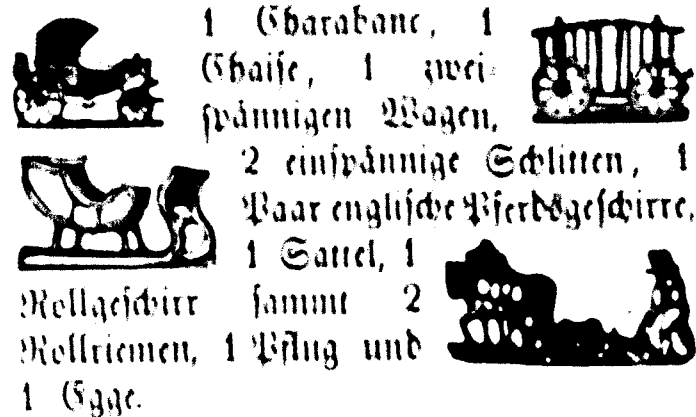 1 Charabanc, 1
Chaise, 1 zwei-
spännigen Wagen,
2 einspännige Schlitten, 1
Paar englische Pferdsgeschirre,
1 Sattel, 1
Rollgeschirr sammt 2
Rollriemen, 1 Pflug und
1 Egge.